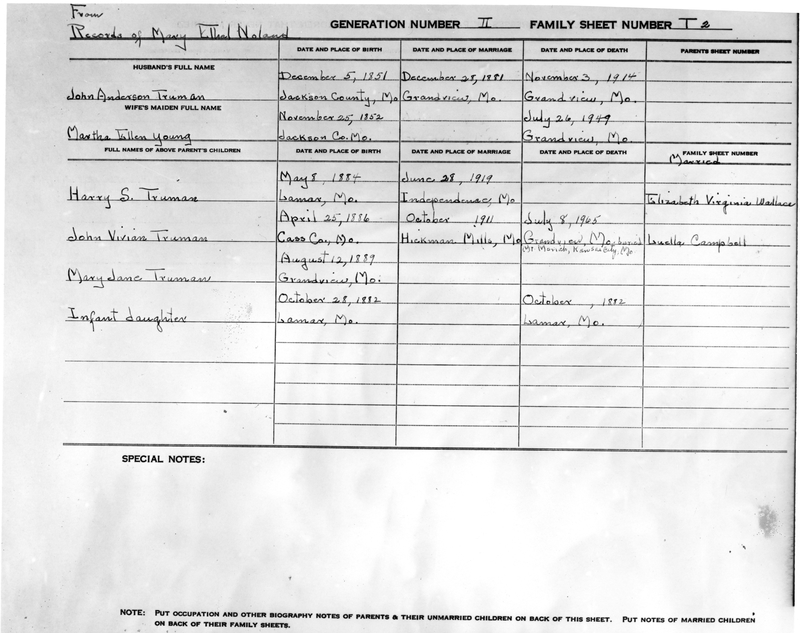 From
Records of Mary Ethel Noland
GENERATION NUMBER II FAMILY SHEET NUMBER T 2
DATE AND PLACE OF BIRTH DATE AND PLACE OF MARRIAGE DATE AND PLACE OF DEATH PARENTS SHEET NUMBER
HUSBAND'S FULL NAME
December 5, 1851 December 28, 1881 November 3, 1914
John Anderson Truman Jackson County, Mo Grandview, Mo. Grandview, Mo.
WIFE'S MAIDEN FULL NAME
November 25, 1852 July 26, 1949
Martha Ellen Young Jackson Co. Mo. Grandview, Mo.
FULL NAMES OF ABOVE PARENT'S CHILDREN DATE AND PLACE OF BIRTH DATE AND PLACE OF MARRIAGE DATE AND PLACE OF DEATH FAMILY SHEET NUMBER
Married
May 8, 1884 June 28, 1919
Harry S. Truman Lamar, Mo. Independence, Mo Elizabeth Virginia Wallace
April 25, 1886 October 1911 July 8, 1965
John Vivian Truman Cass Co., Mo. Hickman Mills, Mo Grandview, Mo. buried Luella Campbell
Mt. Moriah, Kansas City, Mo.
August 12, 1889
Mary Jane Truman Grandview, Mo.
October 28, 1882 October , 1882
Infant daughter Lamar, Mo. Lamar, Mo.
SPECIAL NOTES:
NOTE: PUT OCCUPATION AND OTHER BIOGRAPHY NOTES OF PARENTS & THEIR UNMARRIED CHILDREN ON BACK OF THIS SHEET. PUT NOTES OF MARRIED CHILDREN
ON BACK OF THEIR FAMILY SHEETS.